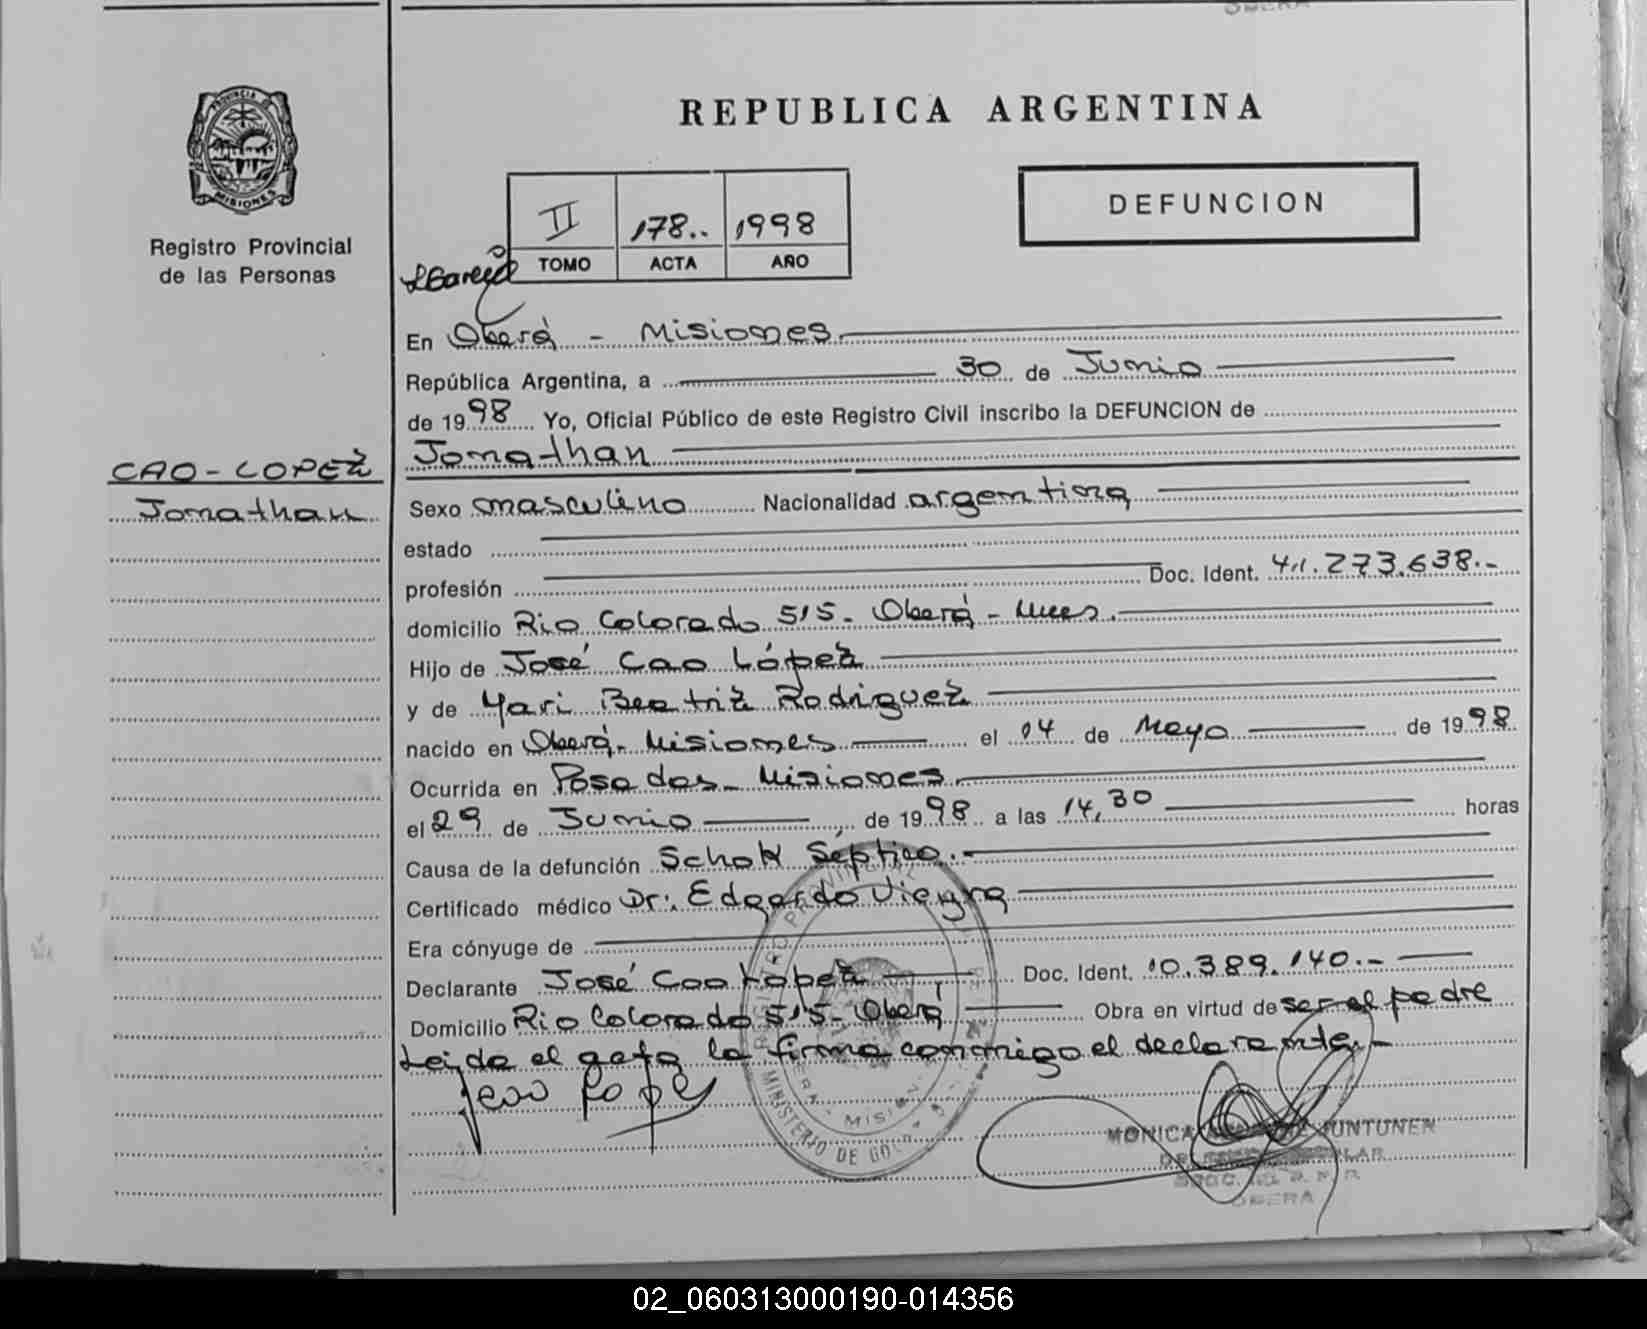 REPUBLICA ARGENTINA
PROVINCIA DE
MISIONES
Registro Provincial
de las Personas
II 178.. 1998
TOMO ACTA AÑO
DEFUNCION
En Oberá - Misiones.
República Argentina, a 30 de Junio
de 1998 Yo, Oficial Público de este Registro Civil inscribo la DEFUNCION de
CAO-LOPEZ
Jonathan
Jonathan
Sexo masculino Nacionalidad argentina
estado
profesión Doc. Ident. 41.273.638.-
domicilio Rio Colorado 515- Oberá - Mnes.
Hijo de José Cao López
y de Mari Beatriz Rodriguez
nacido en Oberá- Misiones el 04 de Mayo de 1998
Ocurrida en Posadas- Misiones.
el 29 de Junio de 1998 a las 14,30 horas
Causa de la defunción Schok Séptico.-
Certificado médico Dr. Edgardo Vieyra
Era cónyuge de
Declarante José Cao Lopez Doc. Ident. 10.389.140.-
Domicilio Rio Colorado 515- Oberá Obra en virtud de ser el padre
Leida el acta la firma conmigo el declarante.-
MINISTERIO DE
MONICA JUNTUNEN
OBERA
02_060313000190-014356